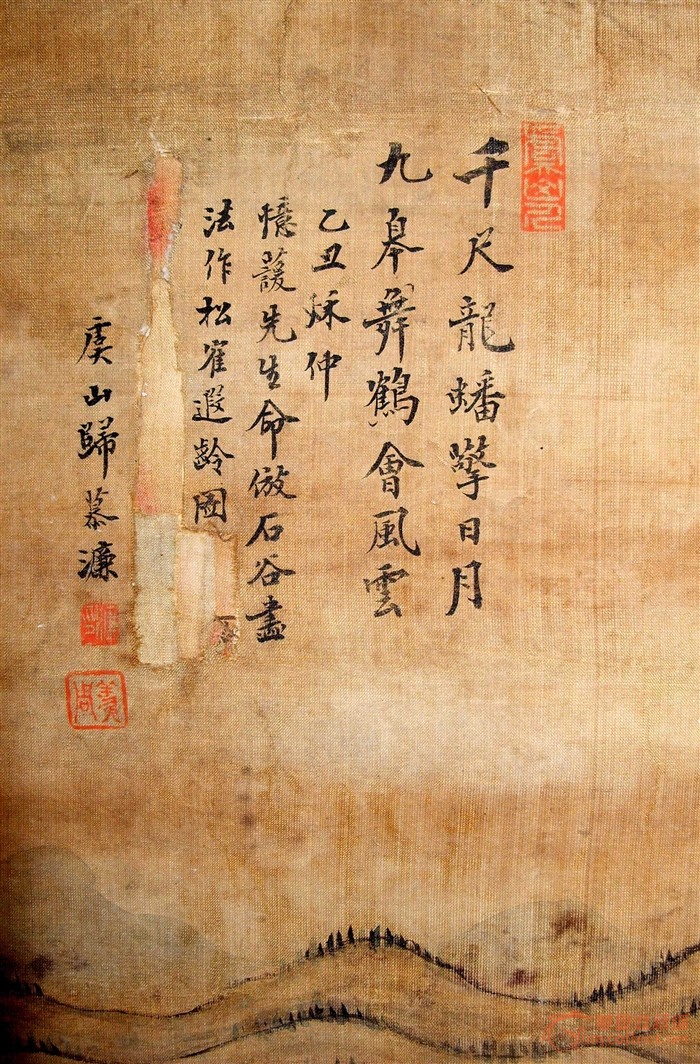 千尺龍蟠擎日月
九皋舞鶴會風雲
乙丑秌仲
憶蘐先生命倣石谷畫
法作松隺遐齡圖
虞山歸慕濂